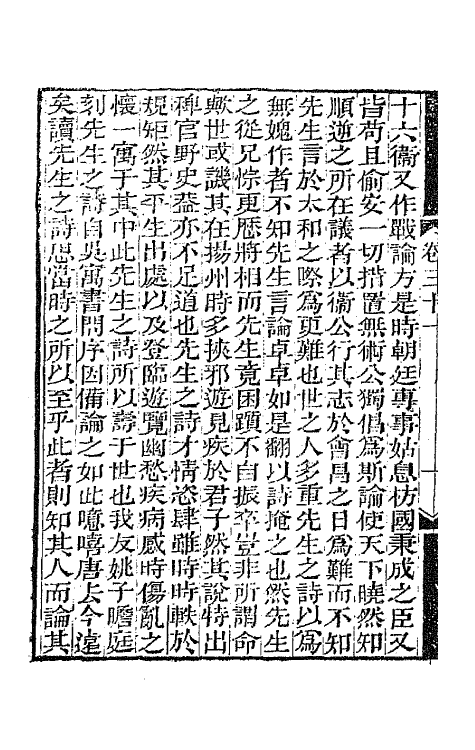 十六衞又作戰論方是時朝廷專事姑息枋國秉成之臣又
皆苟且偷安一切措置無術公獨倡爲斯論使天下曉然知
順逆之所在議者以衞公行其志於會昌之日爲難而不知
先生言於太和之際爲更難也世之人多重先生之詩以爲
無媿作者不知先生言論卓卓如是翻以詩掩之也然先生
之從兄悰更歷將相而先生竟困躓不自振卒豈非所謂命
歟世或譏其在揚州時多挾邪遊見疾於君子然其說特出
稗官野史葢亦不足道也先生之詩才情恣肆雖時時軼於
規矩然其平生出處以及登臨遊覽幽愁疾病感時傷亂之
懷一寓于其中此先生之詩所以壽于世也我友姚子瞻庭
刻先生之詩自吳寓書問序因備論之如此噫嘻唐去今遠
矣讀先生之詩思當時之所以至乎此者則知其人而論其
卷三十